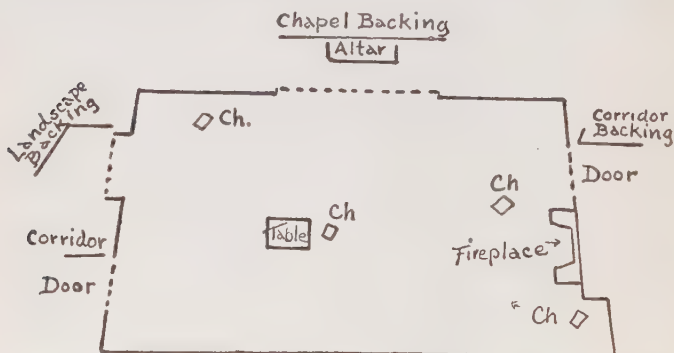 Chapel Backing
Altar
Landscape
Backing
Ch.
Corridor
Backing
Door
Ch
Table
Ch
Fireplace
Corridor
Door
Ch